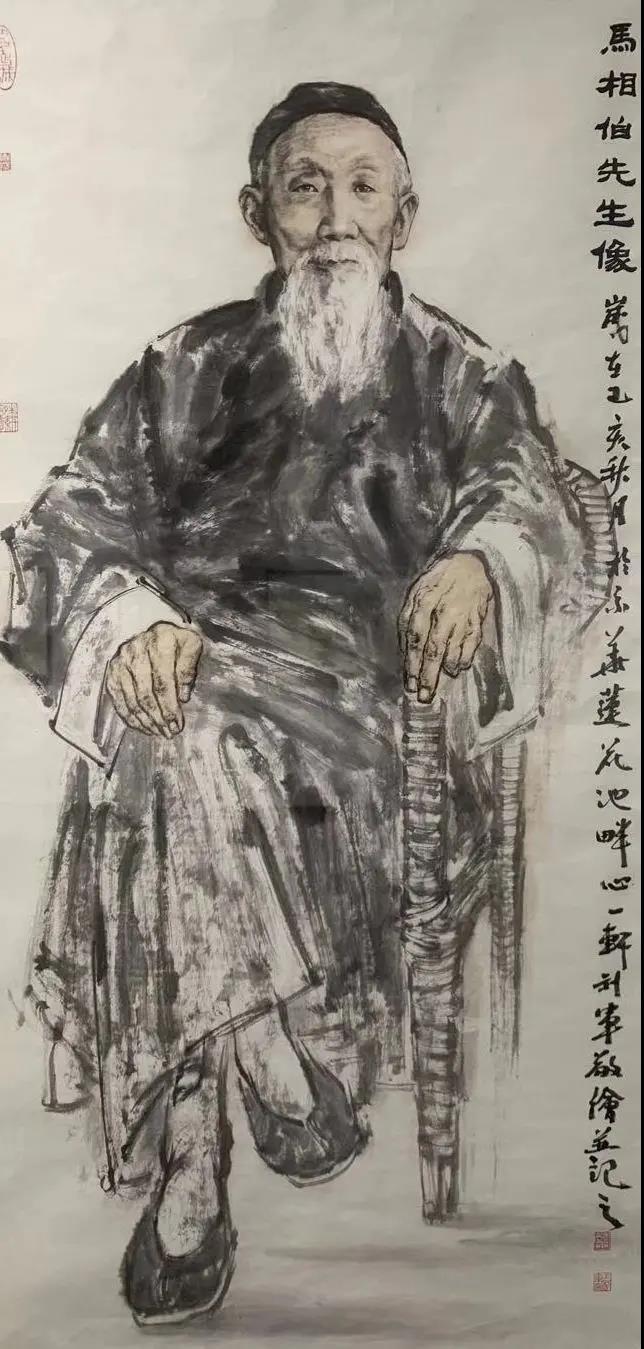 馬相伯先生像 歲在己亥秋月於京華蓮花池畔心一軒刘軍敬繪並記之